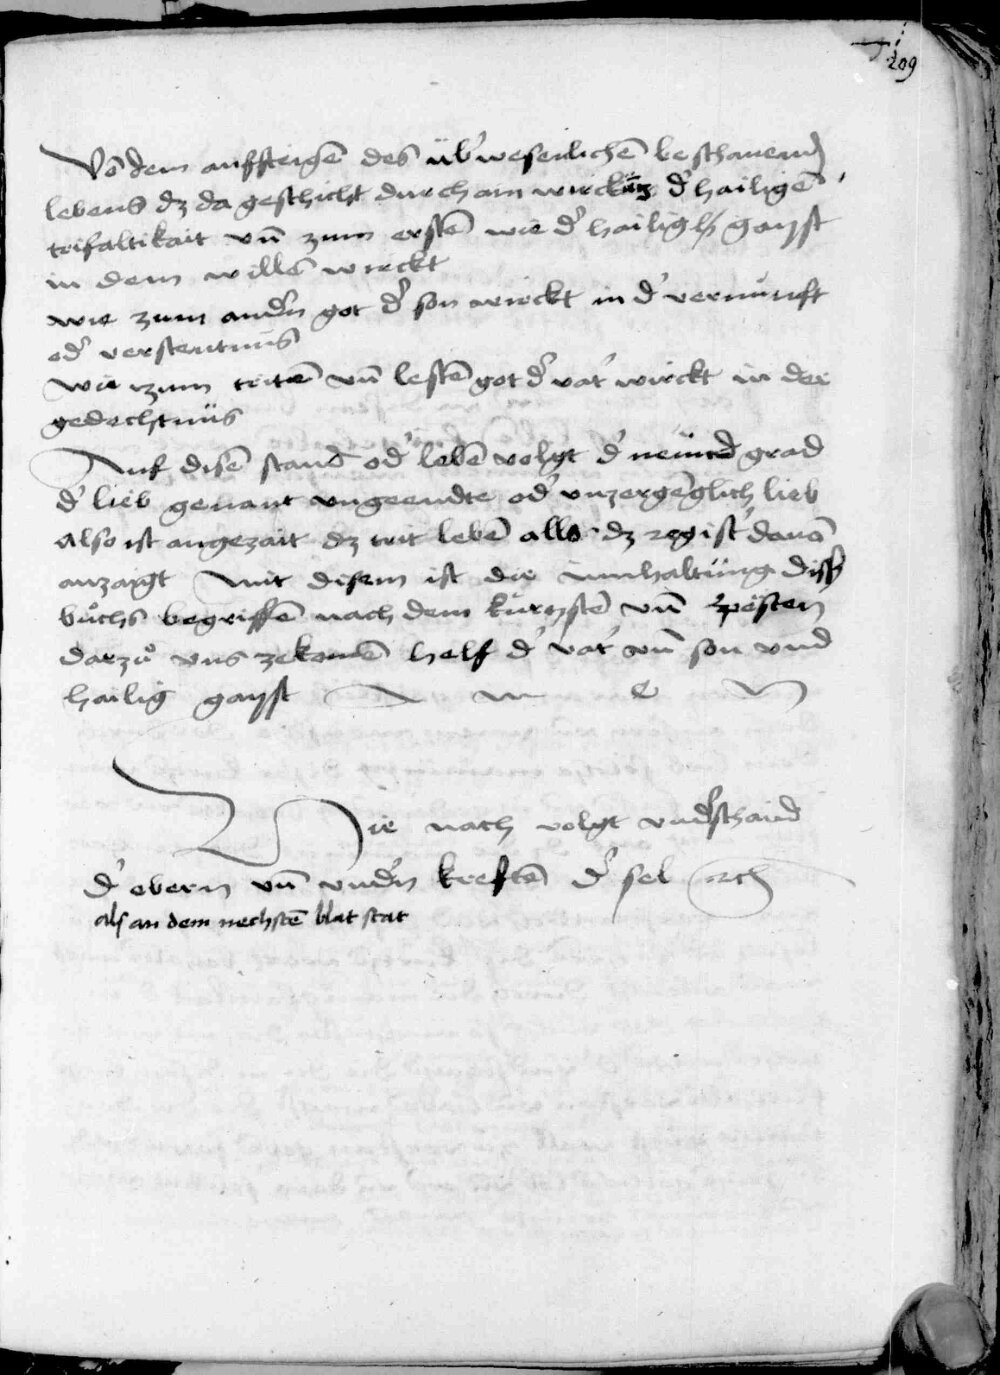 209
Vō dem auffsteigē des üb'wesenlichē beschauend
lebens dz da geschicht durch ain wirckūg d' hailigē
trifaltikait vn̄ zum erstē wie d' hailig gayst
in dem willē wirckt
wie zum andn̄ got d' son wirckt in d' vernunft
od' verstentnüs
wie zum tritē vn̄ lestē got d' vat' wirckt in der
gedechtnüs
Auf disē stand od' lebē volgt d' neund grad
d' lieb genant vngeendte od' vnzergēglich lieb
Also ist angezait dz trit lebē alls dz regist' dauō
anzaigt mit disem ist die innhaltung diß
buͦchs begriffē nach dem kurtzstē vn̄ pesten
darzuͦ vns zekomē helf d' vat' vn̄ son vnd
hailig gayst A m e n
Hie nach volgt vnd'schaid
d' obern vn̄ vndn̄ kreftē d' sel rch
als an dem nechstē blat stat